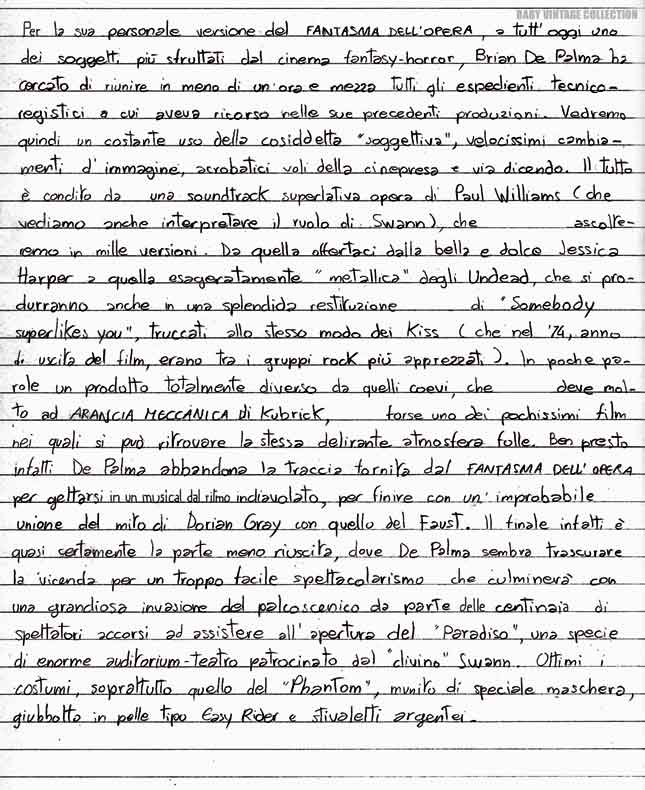 BABY VINTAGE COLLECTION
Per la sua personale versione del FANTASMA DELL'OPERA, a tutt'oggi uno
dei soggetti più sfruttati dal cinema fantasy-horror, Brian De Palma ha
cercato di riunire in meno di un'ora e mezza tutti gli espedienti tecnico-
registici a cui aveva ricorso nelle sue precedenti produzioni. Vedremo
quindi un costante uso della cosiddetta "soggettiva", velocissimi cambia-
menti d'immagine, acrobatici voli della cinepresa e via dicendo. Il tutto
è condito da una soundtrack superlativa opera di Paul Williams (che
vediamo anche interpretare il ruolo di Swann), che ascolte-
remo in mille versioni. Da quella offertaci dalla bella e dolce Jessica
Harper a quella esageratamente "metallica" degli Undead, che si pro-
durranno anche in una splendida restituzione di "Somebody
superlikes you", truccati allo stesso modo dei Kiss (che nel '74, anno
di uscita del film, erano tra i gruppi rock più apprezzati). In poche pa-
role un prodotto totalmente diverso da quelli coevi, che deve mol-
to ad ARANCIA MECCANICA di Kubrick, forse uno dei pochissimi film
nei quali si può ritrovare la stessa delirante atmosfera folle. Ben presto
infatti De Palma abbandona la traccia fornita dal FANTASMA DELL'OPERA
per gettarsi in un musical dal ritmo indiavolato, per finire con un'improbabile
unione del mito di Dorian Gray con quello del Faust. Il finale infatti è
quasi certamente la parte meno riuscita, dove De Palma sembra trascurare
la vicenda per un troppo facile spettacolarismo che culminerà con
una grandiosa invasione del palcoscenico da parte delle centinaia di
spettatori accorsi ad assistere all'apertura del "Paradiso", una specie
di enorme auditorium-teatro patrocinato dal "divino" Swann. Ottimi i
costumi, soprattutto quello del "Phantom", munito di speciale maschera,
giubbotto in pelle tipo Easy Rider e stivaletti argentei.